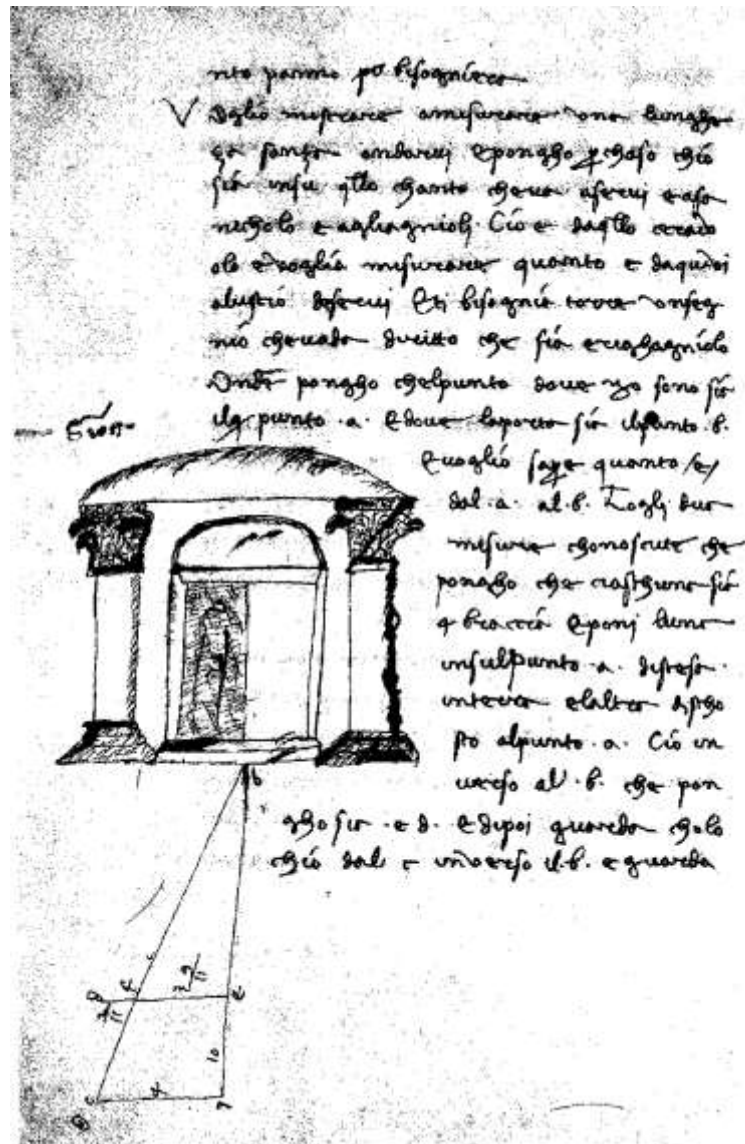 nto parmo bisogniera
Voglio mostrare amisurare una lunghe
za sanza andarvi e pongho p chaso chio
sia insu qllo chanto che va aservi e asa
nicholo e agliagnioli. Cio e daqllo
olo e voglia misurare quanto e daquivi
aluscio deservi Eti bisognia torre unseg
nio che vada diritto che sia
Onde pongho chelpunto dove io sono sia
ilqᵒ punto .a. E dove laporta sia ilpunto .b.
E voglio sapere quanto /e/
dal .a. al .b. Togli due
misure chonosciute che
pongho che ciaschuna sia
4 braccia E poni luna
insulpunto .a. distesa
interra elaltra discho
sto alpunto .a. Cio in
verso al .b. che pon
gho sia .e d. E dipoi guarda cholo
chio dal c inverso il .b. e guarda
b
f
g
e
3 9/11
2/11
10
4
c